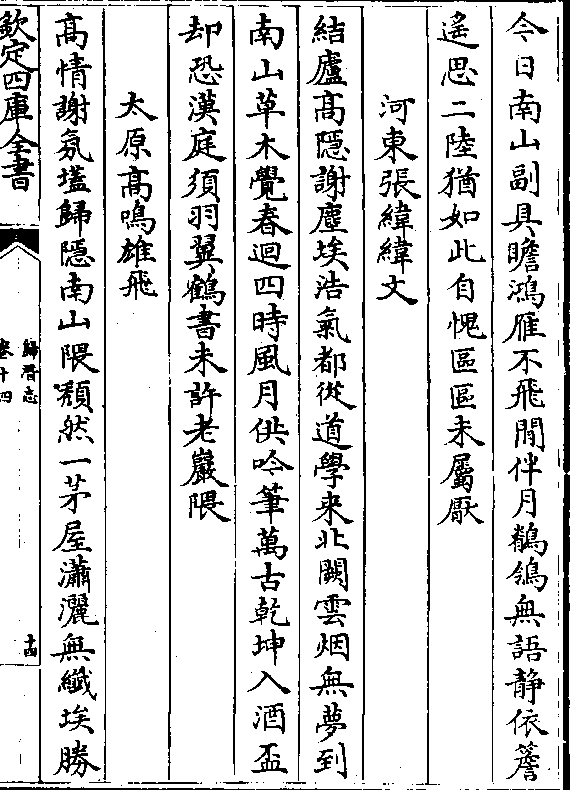 今日南山副具瞻鴻雁不飛閒伴月鶺鴒無語静依簷
遥思二陸猶如此自愧區區未屬厭
河東張緯緯文
結廬髙隠謝塵埃浩氣都從道學来北闕雲烟無夢到
南山草木覺春迴四時風月供吟筆萬古乾坤入酒盃
却恐漢庭須羽翼鶴書未許老巖隈
太原髙鳴雄飛
髙情謝氛壒歸隠南山隈頽然一茅屋瀟灑無纎埃勝
欽定四庫全書
歸潛志
卷十四
十四